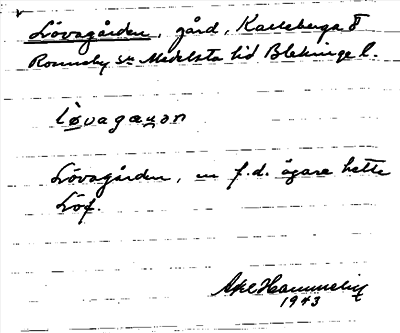 Lövagården, gård, Karlsberga 8
Ronneby sn Medelsta hd Blekinge l.
løvagaɹon
Lövagården, en f.d. ägare hette
Löf.
Axel
1943